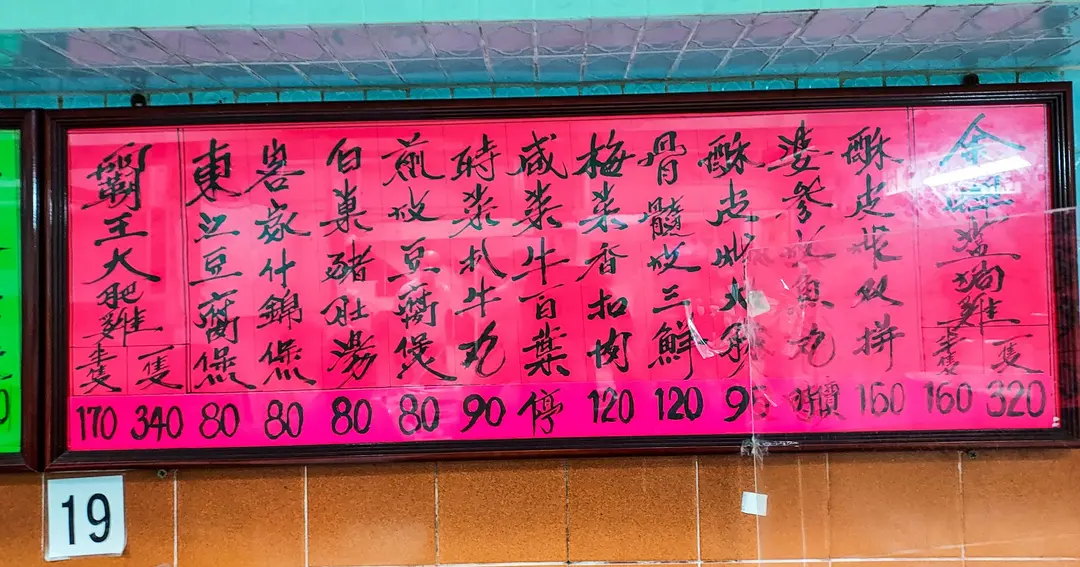 金牌鹽焗雞
一隻
320
半隻
160
酥皮炸双拼
150
婆參魚丸
時價
酥皮炸大
骨髓三鮮
120
梅菜香扣肉
120
咸菜牛百葉
停
時菜扒牛丸
90
煎豆腐煲
80
白菓豬肚湯
80
客家什錦煲
80
東江豆腐煲
80
霸王大肥雞
一隻
340
半隻
170
19